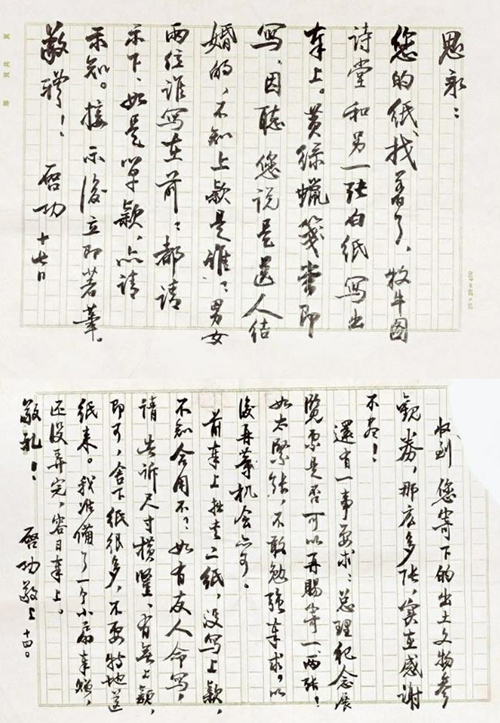 思永：
您的纸、找着了，牧牛图
诗堂和另一张白纸写出
奉上。黄绿蜡笺当即
写，因聽您说是送人结
婚的，不知上款是谁？男女
两位谁写在前？都请
示下，如是单款，亦请
示知。接示後立即着筆。
敬禮！
啓功 十七日
收到您寄下的出土文物参
觀券，那麽多张，实在感谢
不尽！
還有一事要求：总理纪念展
览票是否可以再賜寄一两张？
如太紧张，不敢勉强奉求，以
後再等机会亦可。
前奉上拙画二纸，没写上款，
不知合用不？如有友人命写，
请告诉尺寸横竖、有無上款，
即可，舍下纸很多，不要特地送
纸来。我准備了一个小扇奉赠，
还没弄完，容日奉上。
敬礼！
啓功敬上 十四日